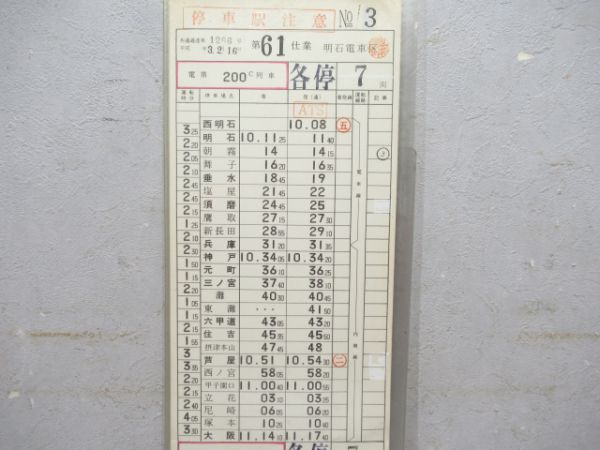 停車駅注意 No. 3
1206 号
3. 2 16 第61仕業 明石電車区
電車 200C列車 各停 7 両
運転時分 停車場名 着 発(通) 着発線 記事
ATS
西明石 10.08 五
3 25 明石 10.11 25 11 40
2 20 朝霧 14 14 15 3
2 20 舞子 16 20 16 35
2 10 垂水 18 45 19
2 45 塩屋 21 45 22
2 45 須磨 24 45 25
2 15 鷹取 27 15 27 30
新長田 28 55 29 10
2 10 兵庫 31 20 31 35
2 30 神戸 10.34 05 10.34 20
1 50 元町 36 10 36 25
1 15 三ノ宮 37 40 38 10
灘 40 30 40 45
東灘 ... 41 50
六甲道 43 05 43 20
2 15 住吉 45 35 45 55
1 50 摂津本山 47 45 48
3 芦屋 10.51 10.54 30 二
3 35 西ノ宮 58 05 58 20
甲子園口 11.00 40 11.00 55
2 15 立花 03 10 03 25
2 40 尼崎 06 05 06 20
4 05 塚本 10 25 10 40
3 30 大阪 11.14 10 11.17 40
電車線
内側線
各停 7